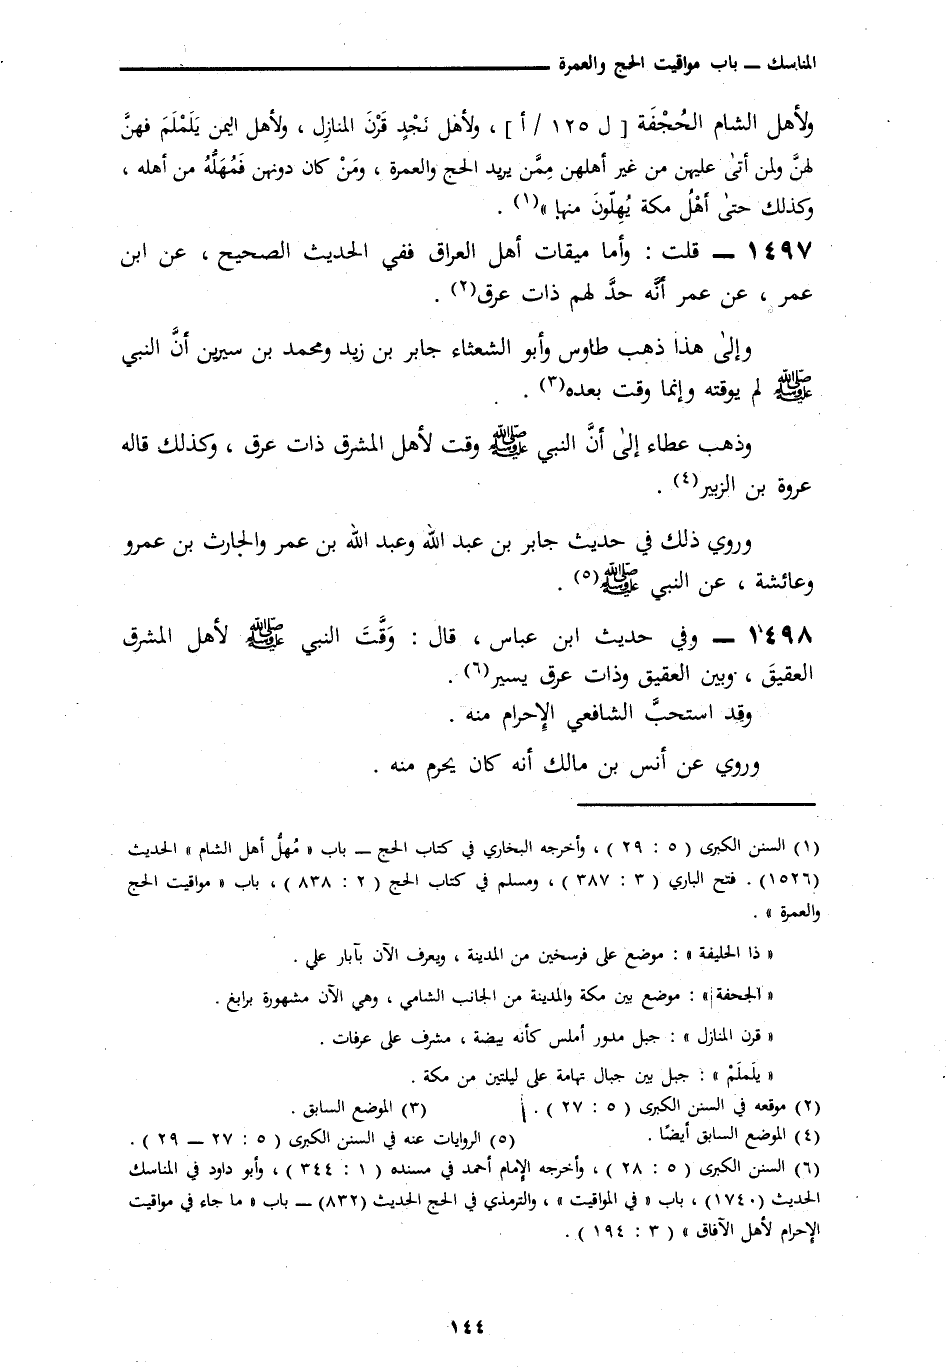 المناسك ــ باب مواقيت الحج والعمرة
ولأهل الشام الحُجْفَة [ ل ١٢٥ / أ ] ، ولأهل نَجْدٍ قَرْنَ المنازِل ، ولأهل اليمن يَلَمْلَمَ فهنَّ
لهنَّ ولمن أتىٰ عليهن من غير أهلهن مِمَّن يريد الحج والعمرة ، ومَنْ كان دونهن فَمُهَلُّهُ من أهله ،
وكذلك حتىٰ أهْلُ مكة يُهِلّونَ منها »(١) .
١٤٩٧ ــ قلت : وأما ميقات أهل العراق ففي الحديث الصحيح ، عن ابن
عمر ، عن عمر أنَّه حدَّ لهم ذات عرق(٢) .
وإلىٰ هذا ذهب طاوس وأبو الشعثاء جابر بن زيد ومحمد بن سيرين أنَّ النبي
ﷺ لم يوقته وإنما وقت بعده(٣) .
وذهب عطاء إلىٰ أنَّ النبي ﷺ وقت لأهل المشرق ذات عرق ، وكذلك قاله
عروة بن الزبير(٤) .
وروي ذلك في حديث جابر بن عبد الله وعبد الله بن عمر والحارث بن عمرو
وعائشة ، عن النبي ﷺ(٥) .
١٤٩٨ ــ وفي حديث ابن عباس ، قال : وَقَّتَ النبي ﷺ لأهل المشرق
العقيقَ ، وبين العقيق وذات عرق يسير(٦) .
وقد استحبَّ الشافعي الإحرام منه .
وروي عن أنس بن مالك أنه كان يحرم منه .
(١) السنن الكبرى ( ٥ : ٢٩ ) ، وأخرجه البخاري في كتاب الحج ــ باب « مُهلُّ أهل الشام » الحديث
(١٥٢٦) . فتح الباري ( ٣ : ٣٨٧ ) ، ومسلم في كتاب الحج ( ٢ : ٨٣٨ ) ، باب « مواقيت الحج
والعمرة » .
« ذا الحليفة » : موضع على فرسخين من المدينة ، ويعرف الآن بآبار علي .
« الجحفة » : موضع بين مكة والمدينة من الجانب الشامي ، وهي الآن مشهورة برابغ .
« قرن المنازل » : جبل مدور أملس كأنه بيضة ، مشرف على عرفات .
« يلَملَمْ » : جبل بين جبال تهامة على ليلتين من مكة .
(٢) موقعه في السنن الكبرى ( ٥ : ٢٧ ) . (٣) الموضع السابق .
(٤) الموضع السابق أيضًا . (٥) الروايات عنه في السنن الكبرى ( ٥ : ٢٧ ــ ٢٩ ) .
(٦) السنن الكبرى ( ٥ : ٢٨ ) ، وأخرجه الإمام أحمد في مسنده ( ١ : ٣٤٤ ) ، وأبو داود في المناسك
الحديث (١٧٤٠) ، باب « في المواقيت » ، والترمذي في الحج الحديث (٨٣٢) ــ باب « ما جاء في مواقيت
الإحرام لأهل الآفاق » ( ٣ : ١٩٤ ) .
١٤٤